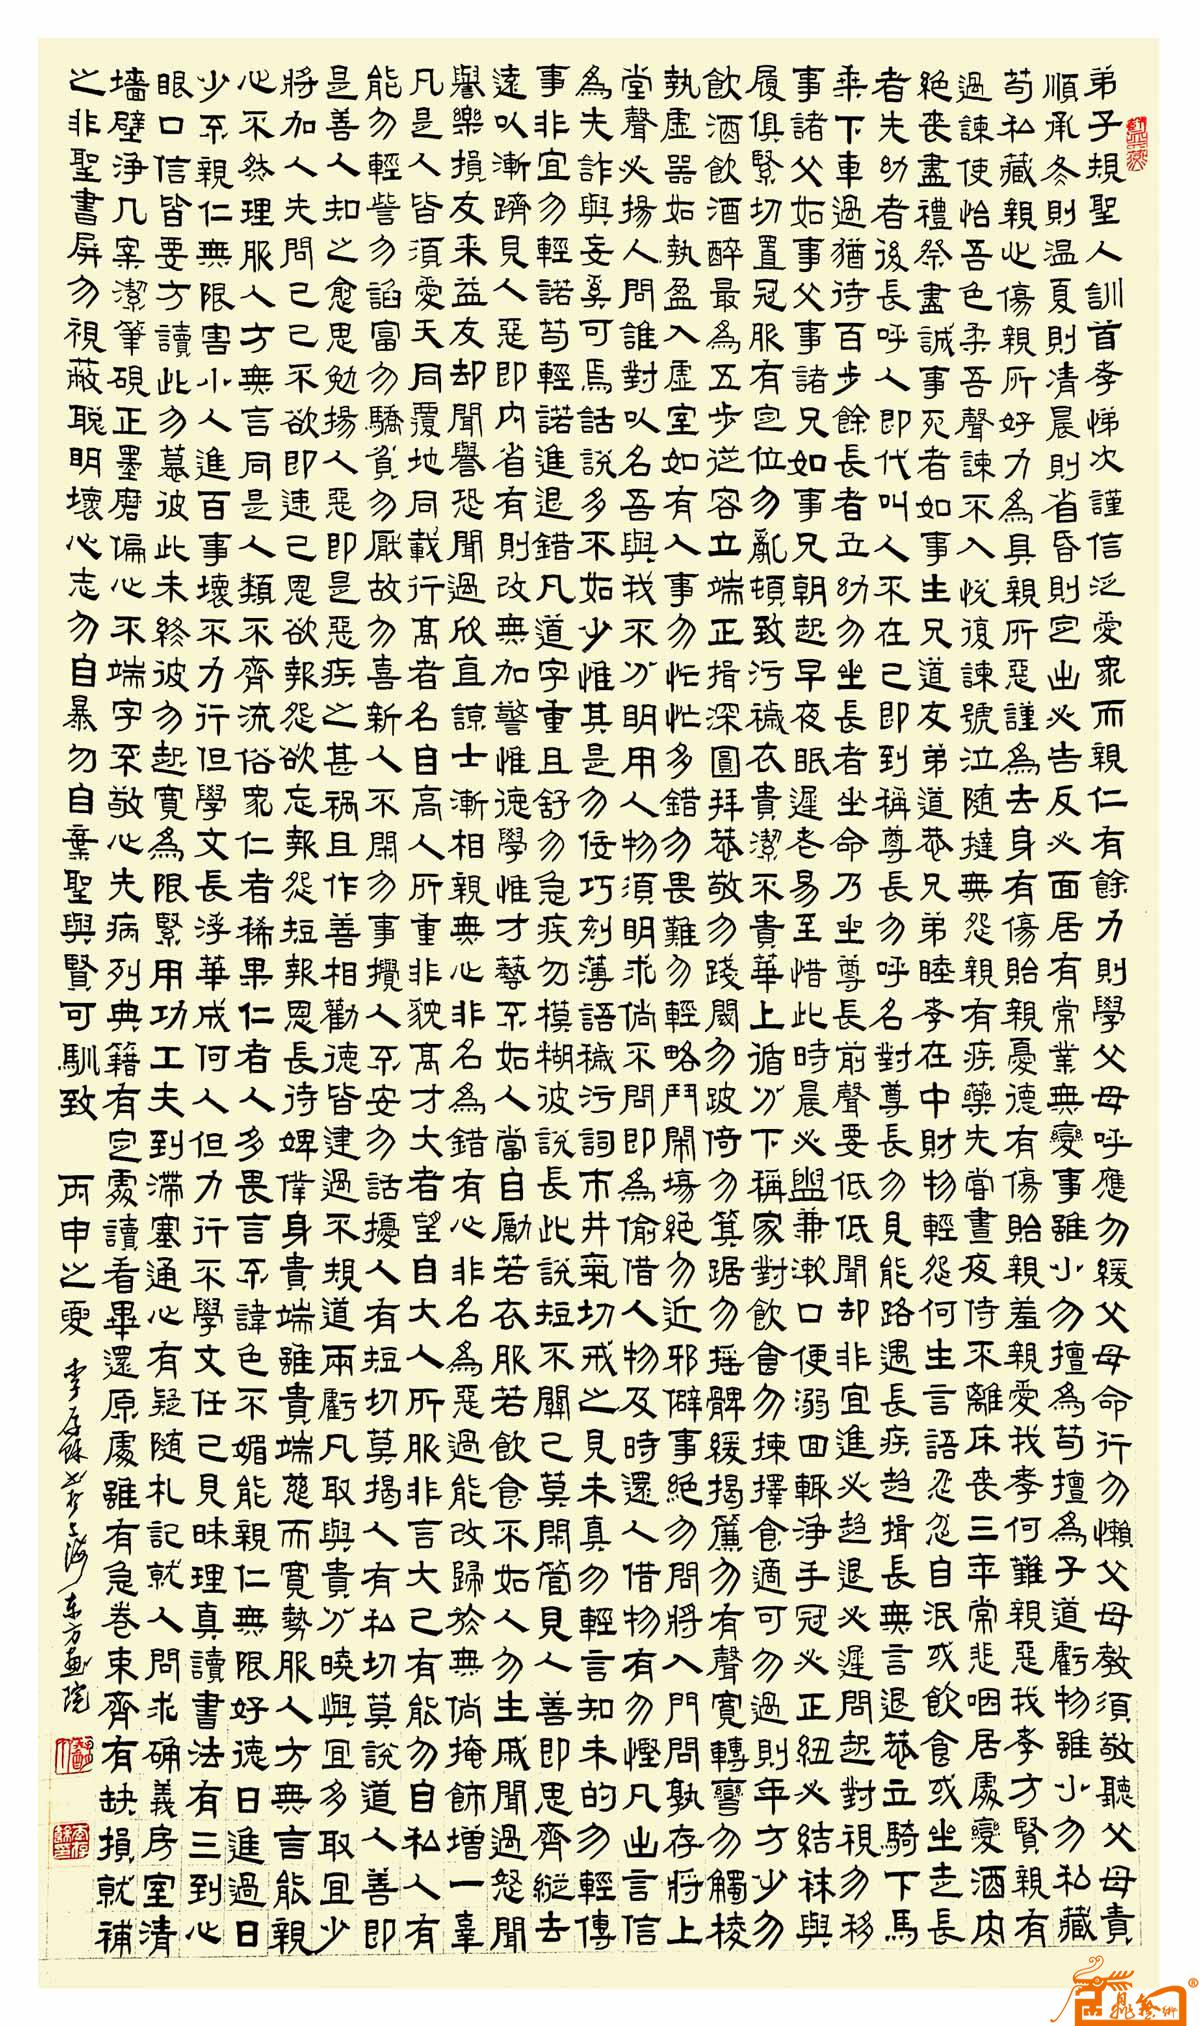 弟子規聖人訓首孝悌次謹信泛愛衆而親仁有餘力則學父母呼應勿緩父母命行勿懶父母教須敬聽父母責
順承冬則温夏則凊晨則省昏則定出必告反必面居有常業無變事雖小勿擅為苟擅為子道虧物雖小勿私藏
苟私藏親心傷親所好力為具親所惡謹為去身有傷貽親憂德有傷貽親羞親愛我孝何難親惡我孝方賢親有
過諫使怡吾色柔吾聲諫不入悅復諫號泣随撻無怨親有疾藥先嘗晝夜侍不離床喪三年常悲咽居處變酒肉
絕喪盡禮祭盡誠事死者如事生兄道友弟道恭兄弟睦孝在中財物輕怨何生言語忍忿自泯或飲食或坐走長
者先幼者後長呼人即代叫人不在己即到稱尊長勿呼名對尊長勿見能路遇長疾趨揖長無言退恭立騎下馬
乘下車過猶待百步餘長者立幼勿坐長者坐命乃坐尊長前聲要低低聞却非宜進必趨退必遲問起對視勿移
事諸父如事父事諸兄如事兄朝起早夜眠遲老易至惜此時晨必盥兼漱口便溺回輒淨手冠必正紐必結袜與
履俱緊切置冠服有定位勿亂頓致污穢衣貴潔不貴華上循分下稱家對飲食勿揀擇食適可勿過則年方少勿
飲酒飲酒醉最為丑步從容立端正揖深圓拜恭敬勿踐閾勿跛倚勿箕踞勿摇髀緩揭簾勿有聲寬轉彎勿觸棱
執虛器如執盈入虛室如有人事勿忙忙多錯勿畏難勿輕略鬥鬧場絕勿近邪僻事絕勿問將入門問孰存將上
堂聲必揚人問誰對以名吾與我不分明用人物須明求倘不問即為偷借人物及時還人借物有勿慳凡出言信
為先詐與妄奚可焉話說多不如少惟其是勿佞巧刻薄語穢污詞市井氣切戒之見未真勿輕言知未的勿輕傳
事非宜勿輕諾苟輕諾進退錯凡道字重且舒勿急疾勿模糊彼說長此說短不關己莫閑管見人善即思齊縱去
遠以漸躋見人惡即內省有則改無加警惟德學惟才藝不如人當自勵若衣服若飲食不如人勿生戚聞過怒聞
譽樂損友来益友却聞譽恐聞過欣直諒士漸相親無心非名為錯有心非名為惡過能改歸於無倘掩飾增一辜
凡是人皆須愛天同覆地同載行高者名自高人所重非貌高才大者望自大人所服非言大己有能勿自私人有
能勿輕訾勿諂富勿驕貧勿厭故勿喜新人不閑勿事攪人不安勿話擾人有短切莫揭人有私切莫說道人善即
是善人知之愈思勉揚人惡即是惡疾之甚禍且作善相勸德皆建過不規道兩虧凡取與貴分曉與宜多取宜少
將加人先問己己不欲即速已恩欲報怨欲忘報怨短報恩長待婢僕身貴端雖貴端慈而寬勢服人方無言能親
心不然理服人方無言同是人類不齊流俗衆仁者稀果仁者人多畏言不諱色不媚能親仁無限好德日進過日
少不親仁無限害小人進百事壞不力行但學文長浮華成何人但力行不學文任己見昧理真讀書法有三到心
眼口信皆要方讀此勿慕彼此未終彼勿起寬為限緊用功工夫到滯塞通心有疑随札記就人問求确義房室清
墻壁淨几案潔筆硯正墨磨偏心不端字不敬心先病列典籍有定處讀看畢還原處雖有急卷束齊有缺損就補
之非聖書屏勿視蔽聪明壞心志勿自暴勿自棄聖與賢可馴致 丙申之夏 李存稣书於上海东方画院